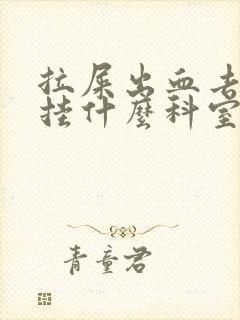 拉屎出血去
挂什麼科室
青童君